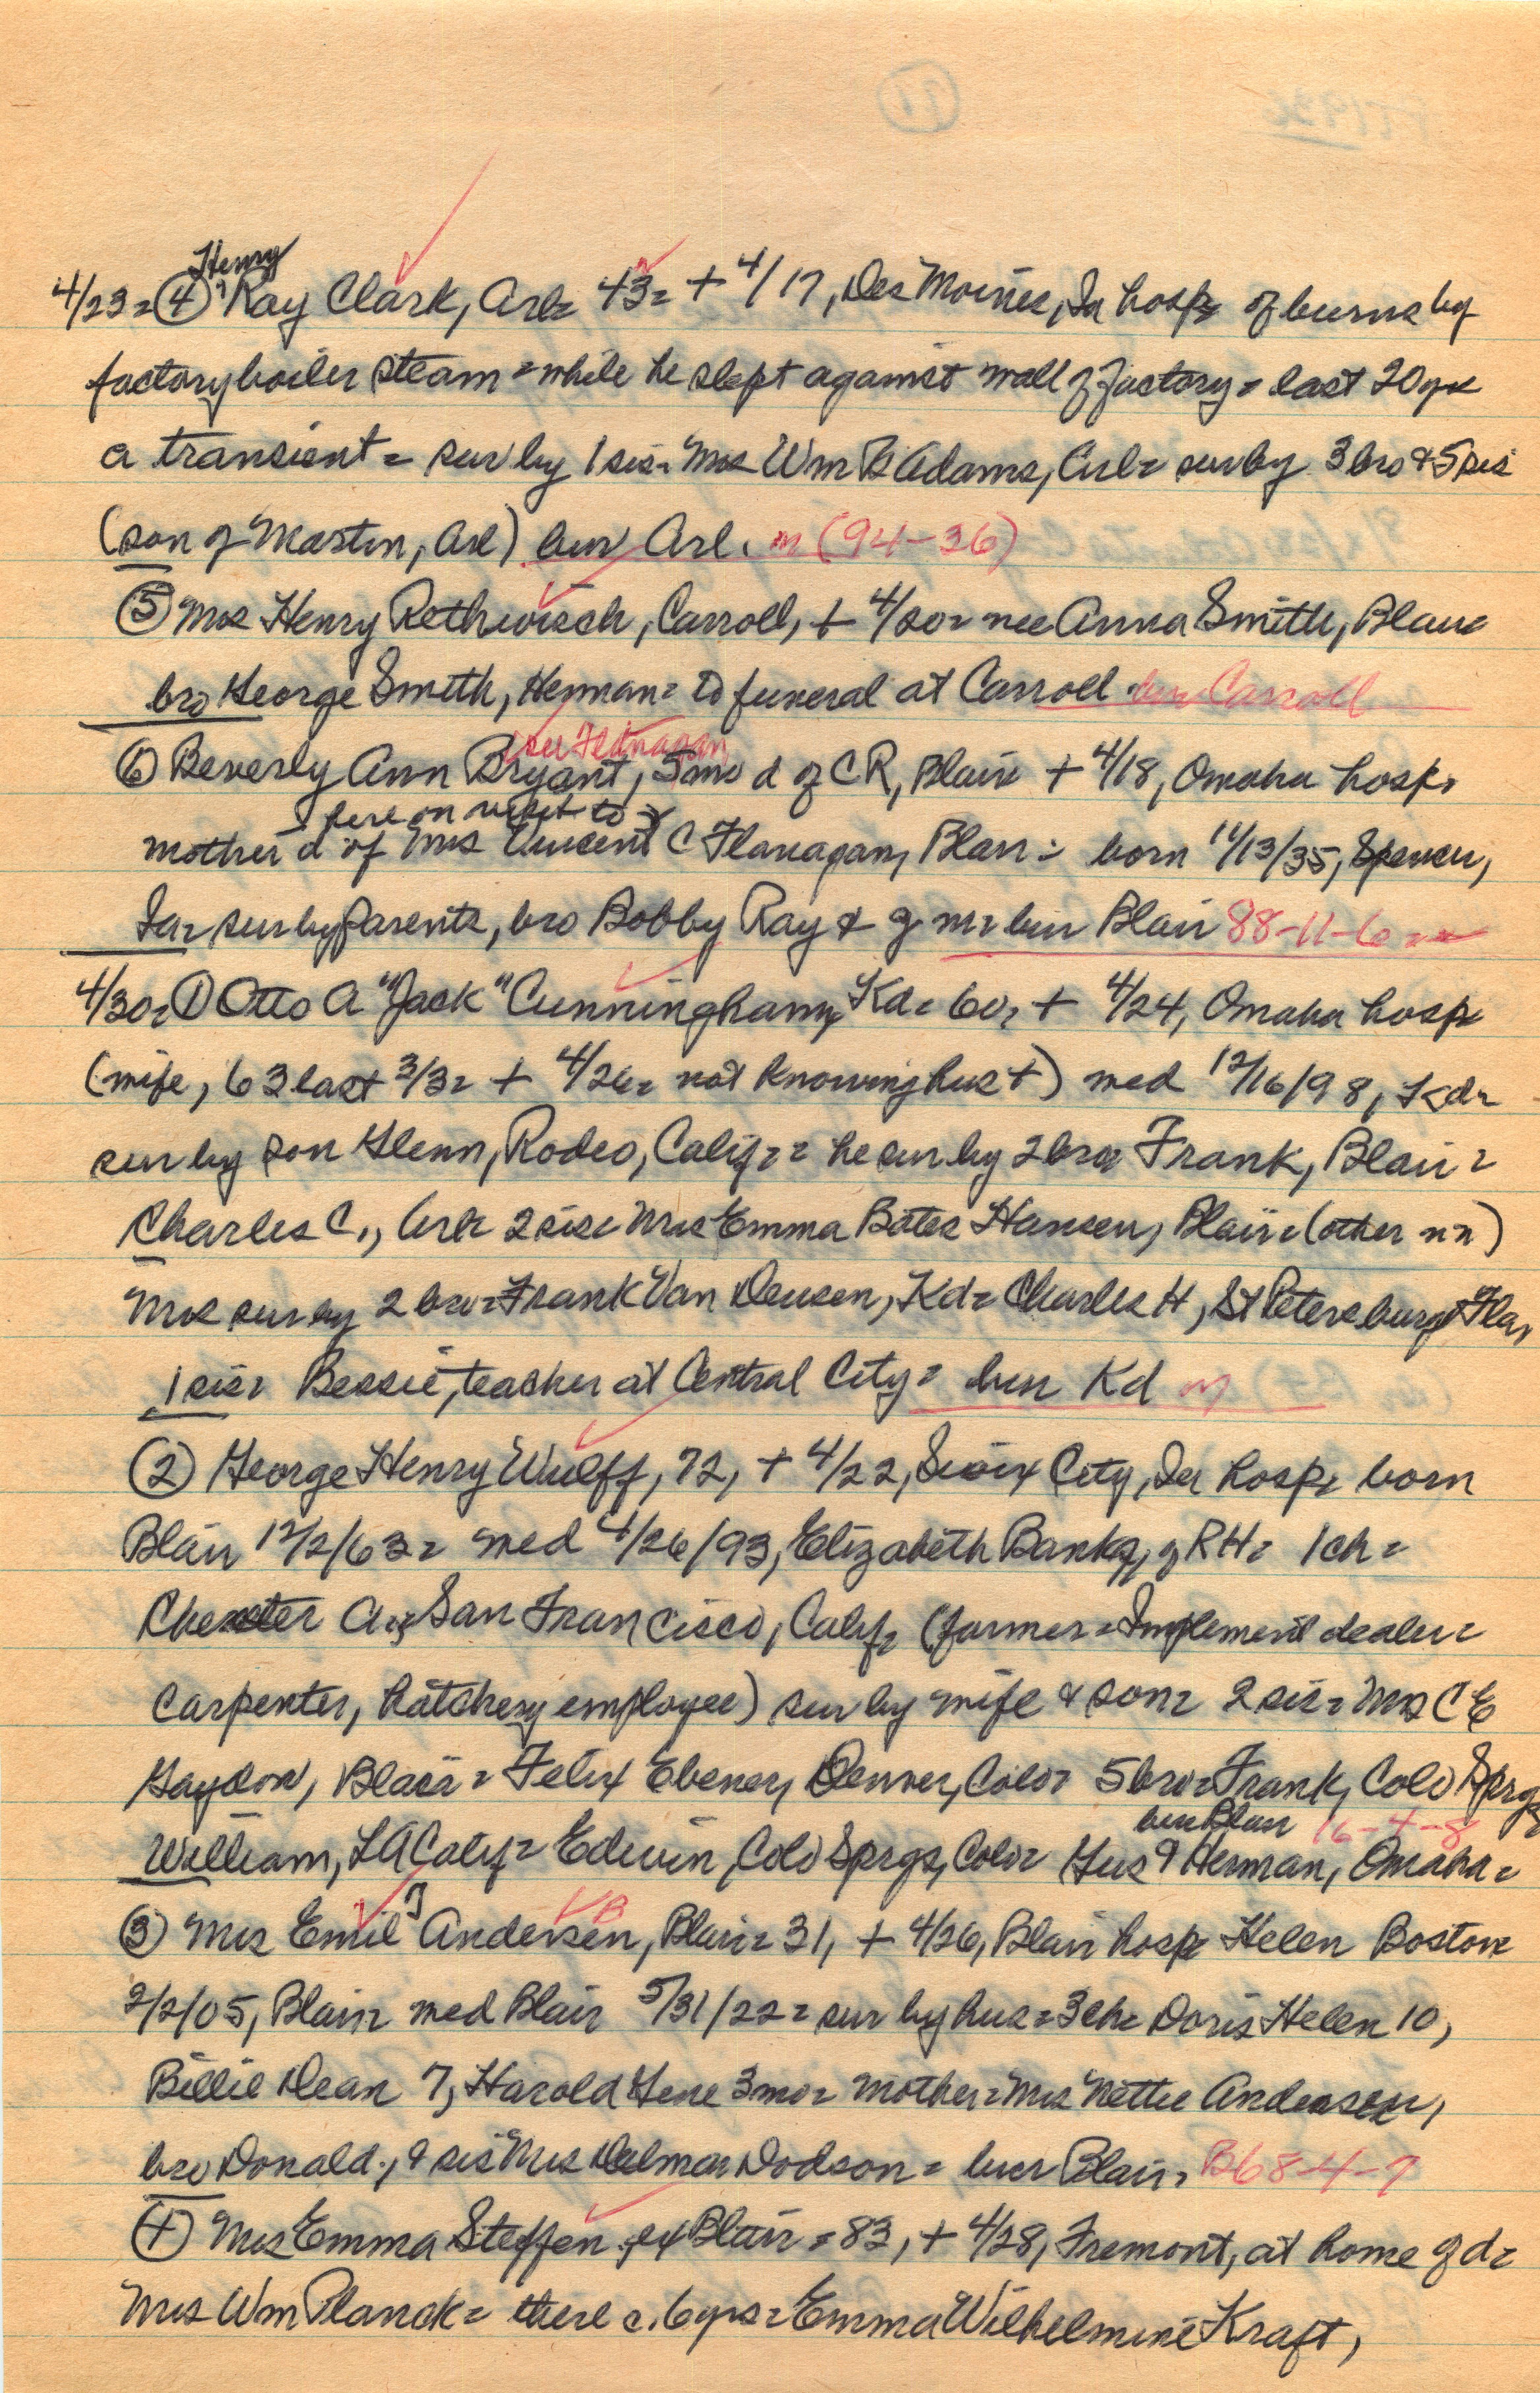 Henry
4/23 = ④ Ray Clark, Arl = 43 = + 4/17, Des Moines, Ia hosp of burns by
factory boiler steam = while he slept against wall of factory = last 20 yrs
a transient = sur by 1 sis = Mrs Wm B Adams, Arl = sur by 3 bro & 5 sis
(son of Martin, Arl) bur Arl. m (94-36)
⑤ Mrs Henry Rethwisch, Carroll, + 4/20 = nee Anna Smith, Blair =
bro George Smith, Herman = to funeral at Carroll bur Carroll
see Flanagan
⑥ Beverly Ann Bryant, 5 mo d of C R, Blair + 4/18, Omaha hosp =
here on visit to
mother d of Mrs Vincent C Flanagan, Blair = born 11/13/35, Spencer,
Ia = sur by parents, bro Bobby Ray & g m = bur Blair 88-11-6
4/30 = ① Otto A "Jack" Cunningham, Kd = 60, + 4/24, Omaha hosp
(wife, 63 last 3/3 = + 4/26 = not knowing hus +) med 12/16/98, Kd =
sur by son Glenn, Rodeo, Calif = he sur by 2 bro = Frank, Blair =
Charles C., Arl = 2 sis = Mrs Emma Bates Hansen, Blair = (other nn)
Mrs sur by 2 bro = Frank Van Deusen, Kd = Charles H, St Petersburg Fla,
1 sis = Bessie, teacher at Central City = bur Kd m
② George Henry Wulff, 72, + 4/22, Sioux City, Ia hosp = born
Blair 12/2/63 = med 4/26/93, Elizabeth Banks, of R H = 1 ch =
Chester A, San Francisco, Calif = (farmer = Implement dealer =
carpenter, hatchery employee) sur by wife & son = 2 sis = Mrs C E
Gaydou, Blair = Felix Ebener, Denver, Colo = 5 bro = Frank, Colo Sprgs
bur Blair 16-4-8
William, LA Calif = Edwin, Colo Sprgs, Colo = Gus & Herman, Omaha =
③ Mrs Emil J Andersen, Blair = 31, + 4/26, Blair hosp Helen Boston
2/2/05, Blair = med Blair 5/31/22 = sur by hus = 3 ch = Doris Helen 10,
Billie Dean 7, Harold Gene 3 mo = mother = Mrs Nettie Andersen,
bro Donald., & sis Mrs Delmar Dodson = bur Blair, B68-4-7
④ Mrs Emma Steffen, ex Blair = 83, + 4/28, Fremont, at home of d =
Mrs Wm Planck = there c. 6 yrs = Emma Wilhelmine Kraft,